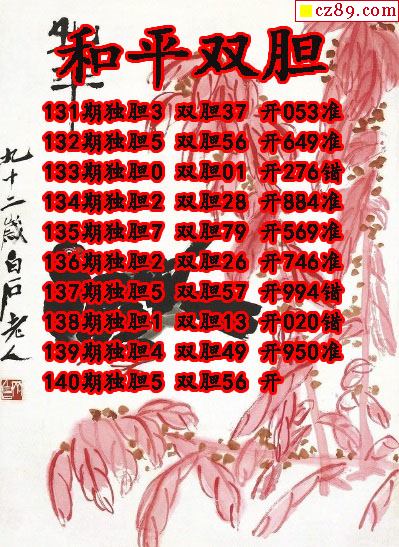 cz89.com
和平双胆
131期独胆3 双胆37 开053准
132期独胆5 双胆56 开649准
133期独胆0 双胆01 开276错
134期独胆2 双胆28 开884准
135期独胆7 双胆79 开569准
136期独胆2 双胆26 开746准
137期独胆5 双胆57 开994错
138期独胆1 双胆13 开020错
139期独胆4 双胆49 开950准
140期独胆5 双胆56 开
九十二岁白石老人